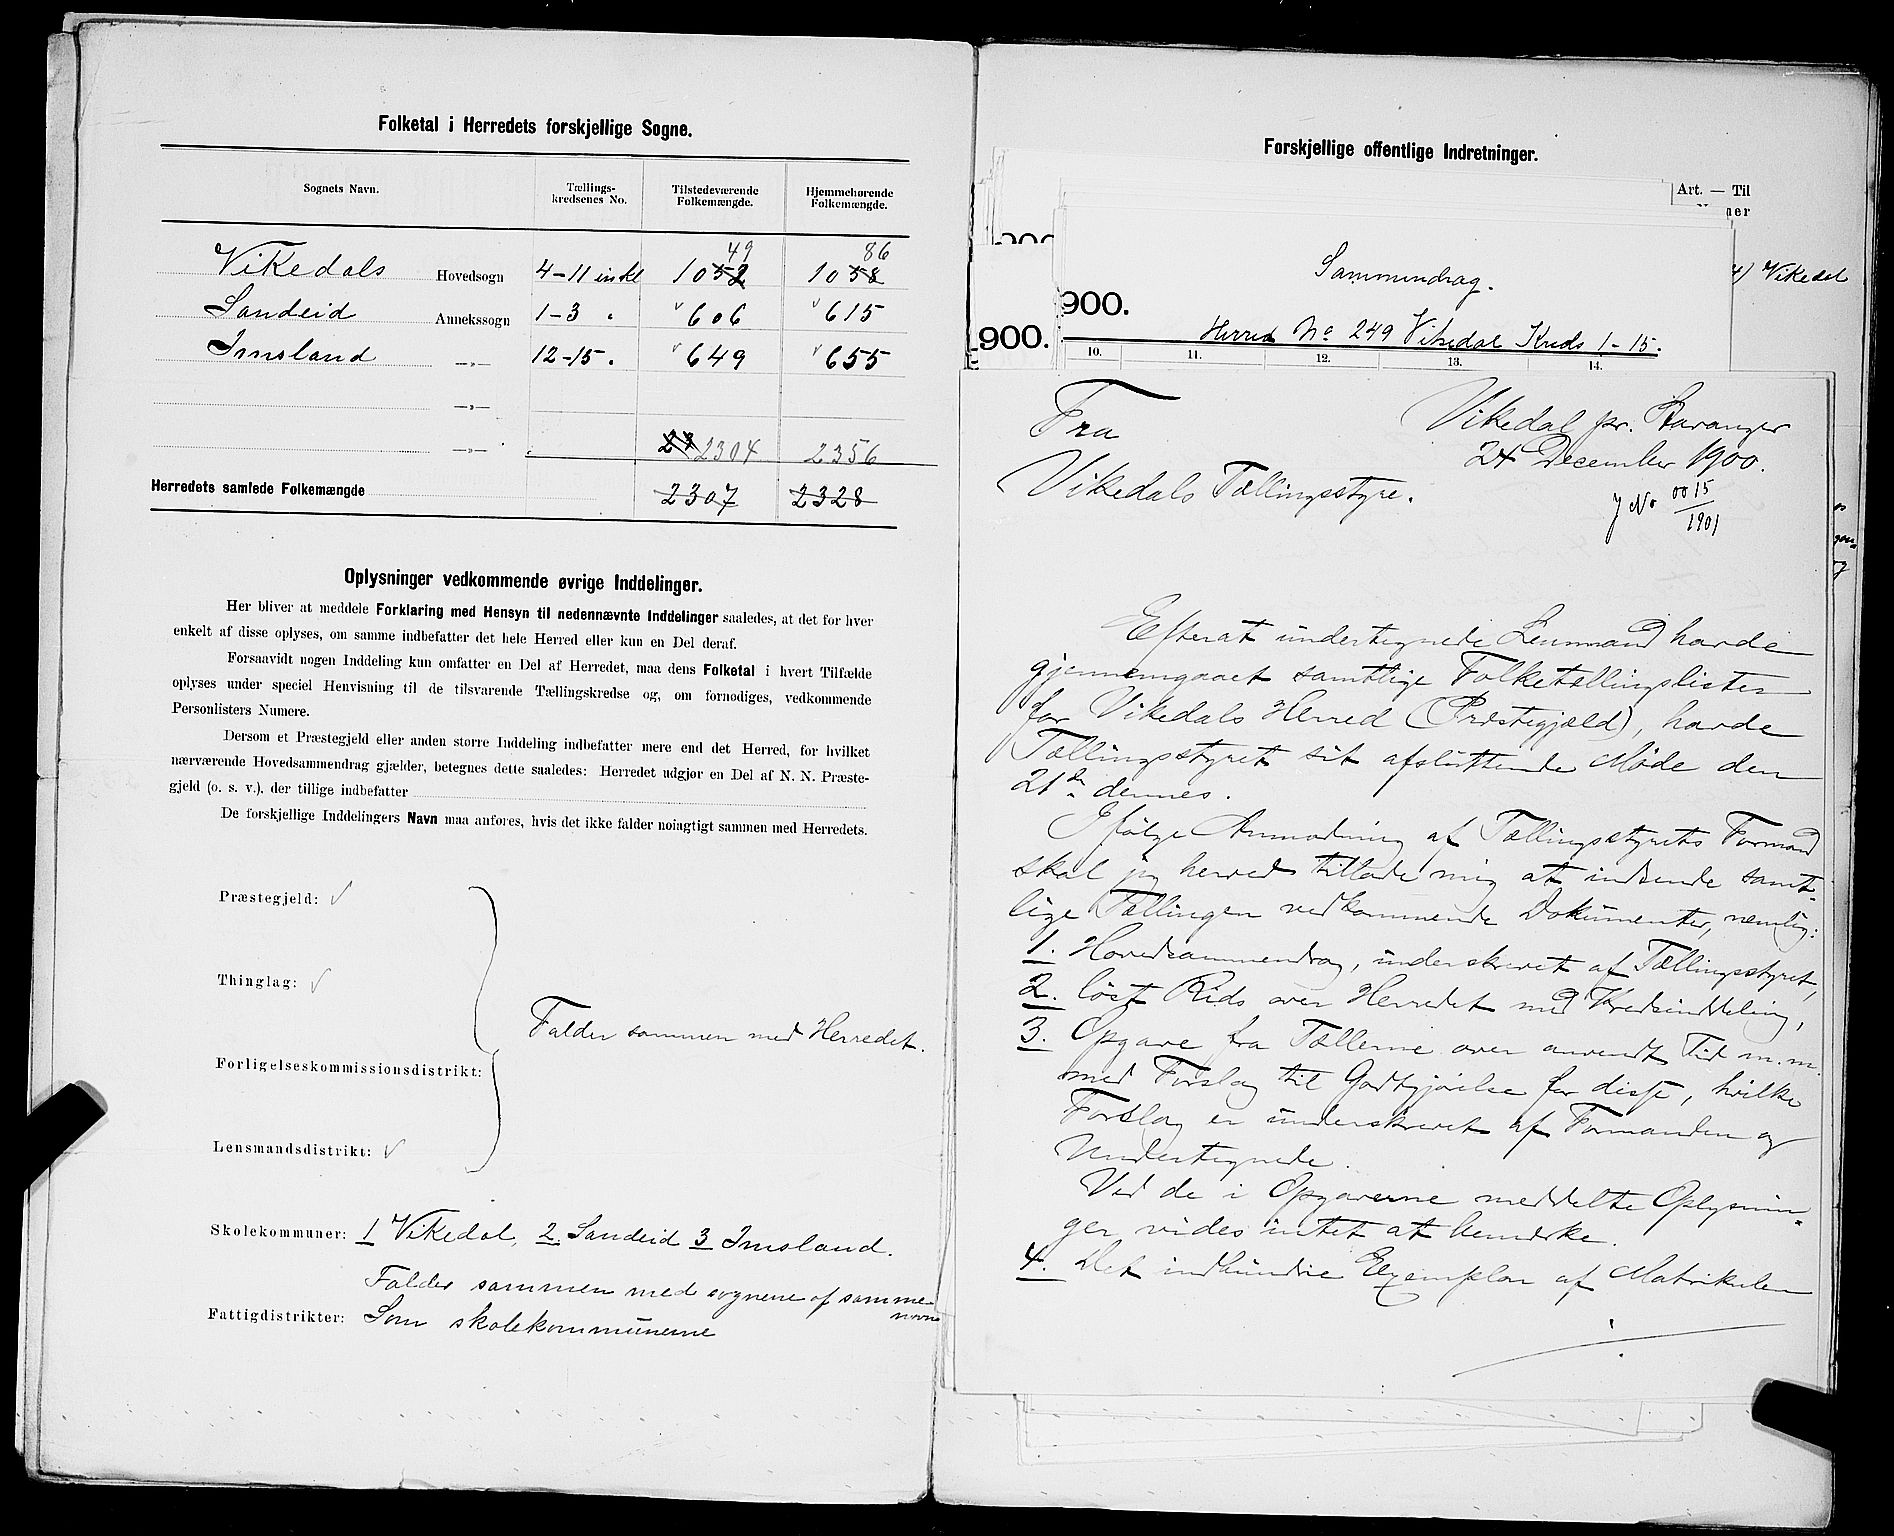 Folketal i Herredets forskjellige Sogne.
Sognets Navn.
Tællings-
kredsenes No.
Tilstedeværende
Folkemængde.
Hjemmehørende
Folkemængde.
49 86
Vikedals Hovedsogn 4-11 inkl 1052 1058
Sandeid Annekssogn 1-3 606 615
Imsland —»— 12-15. 649 655
—»—
—»— 23 2304 2356
Herredets samlede Folkemængde 2307 2328
Oplysninger vedkommende øvrige Inddelinger.
Her bliver at meddele Forklaring med Hensyn til nedennævnte Inddelinger saaledes, at det for hver
enkelt af disse oplyses, om samme indbefatter det hele Herred eller kun en Del deraf.
Forsaavidt nogen Inddeling kun omfatter en Del af Herredet, maa dens Folketal i hvert Tilfælde
oplyses under speciel Henvisning til de tilsvarende Tællingskredse og, om fornødiges, vedkommende
Personlisters Numere.
Dersom et Præstegjeld eller anden større Inddeling indbefatter mere end det Herred, for hvilket
nærværende Hovedsammendrag gjælder, betegnes dette saaledes: Herredet udgjør en Del af N. N. Præste-
gjeld (o. s. v.), der tillige indbefatter
De forskjellige Inddelingers Navn maa anføres, hvis det ikke falder nøiagtigt sammen med Herredets.
Præstegjeld:
Thinglag:
Falder sammen med Herredet.
Forligelseskommissionsdistrikt:
Lensmandsdistrikt:
Skolekommuner: 1 Vikedal, 2. Sandeid 3 Imsland.
Falder sammen med sognene af samme
navn
Fattigdistrikter: Som skolekommunerne
Forskjellige offentlige Indretninger.
Art. — Til
ner
900.
Sammendrag.
4) Vikedal
900.
900.
Herred No 249 Vikedal Kreds 1-15.
10. 11. 12. 13. 14.
Fra
Vikedal pr. Stavanger
24 December 1900.
Vikedals Tællingsstyre.
J No 0015
1901
Efterat undertegnede Lensmand havde
gjennemgaaet samtlige Folketællingslister
for Vikedals Herred (Præstegjæld), havde
Tællingsstyret sit afsluttende Møde den
21de dennes.
Ifølge Anmodning af Tællingsstyrets Formand
skal jeg herved tillade mig at indsende samt-
lige Tællingen vedkommende Dokumenter, nemlig:
1. Hovedsammendrag, underskrevet af Tællingsstyret,
2. løst Rids over Herredet med Kredsinddeling,
3. Opgave fra Tællerne over anvendt Tid m.m.
med Forslag til Godtgjørelse for disse, hvilke
Forslag er underskrevet af Formanden og
Undertegnede.
Ved de i Opgaverne meddelte Oplysnin-
ger vides intet at bemærke.
4. Det indbundne Exemplar af Matrikulen